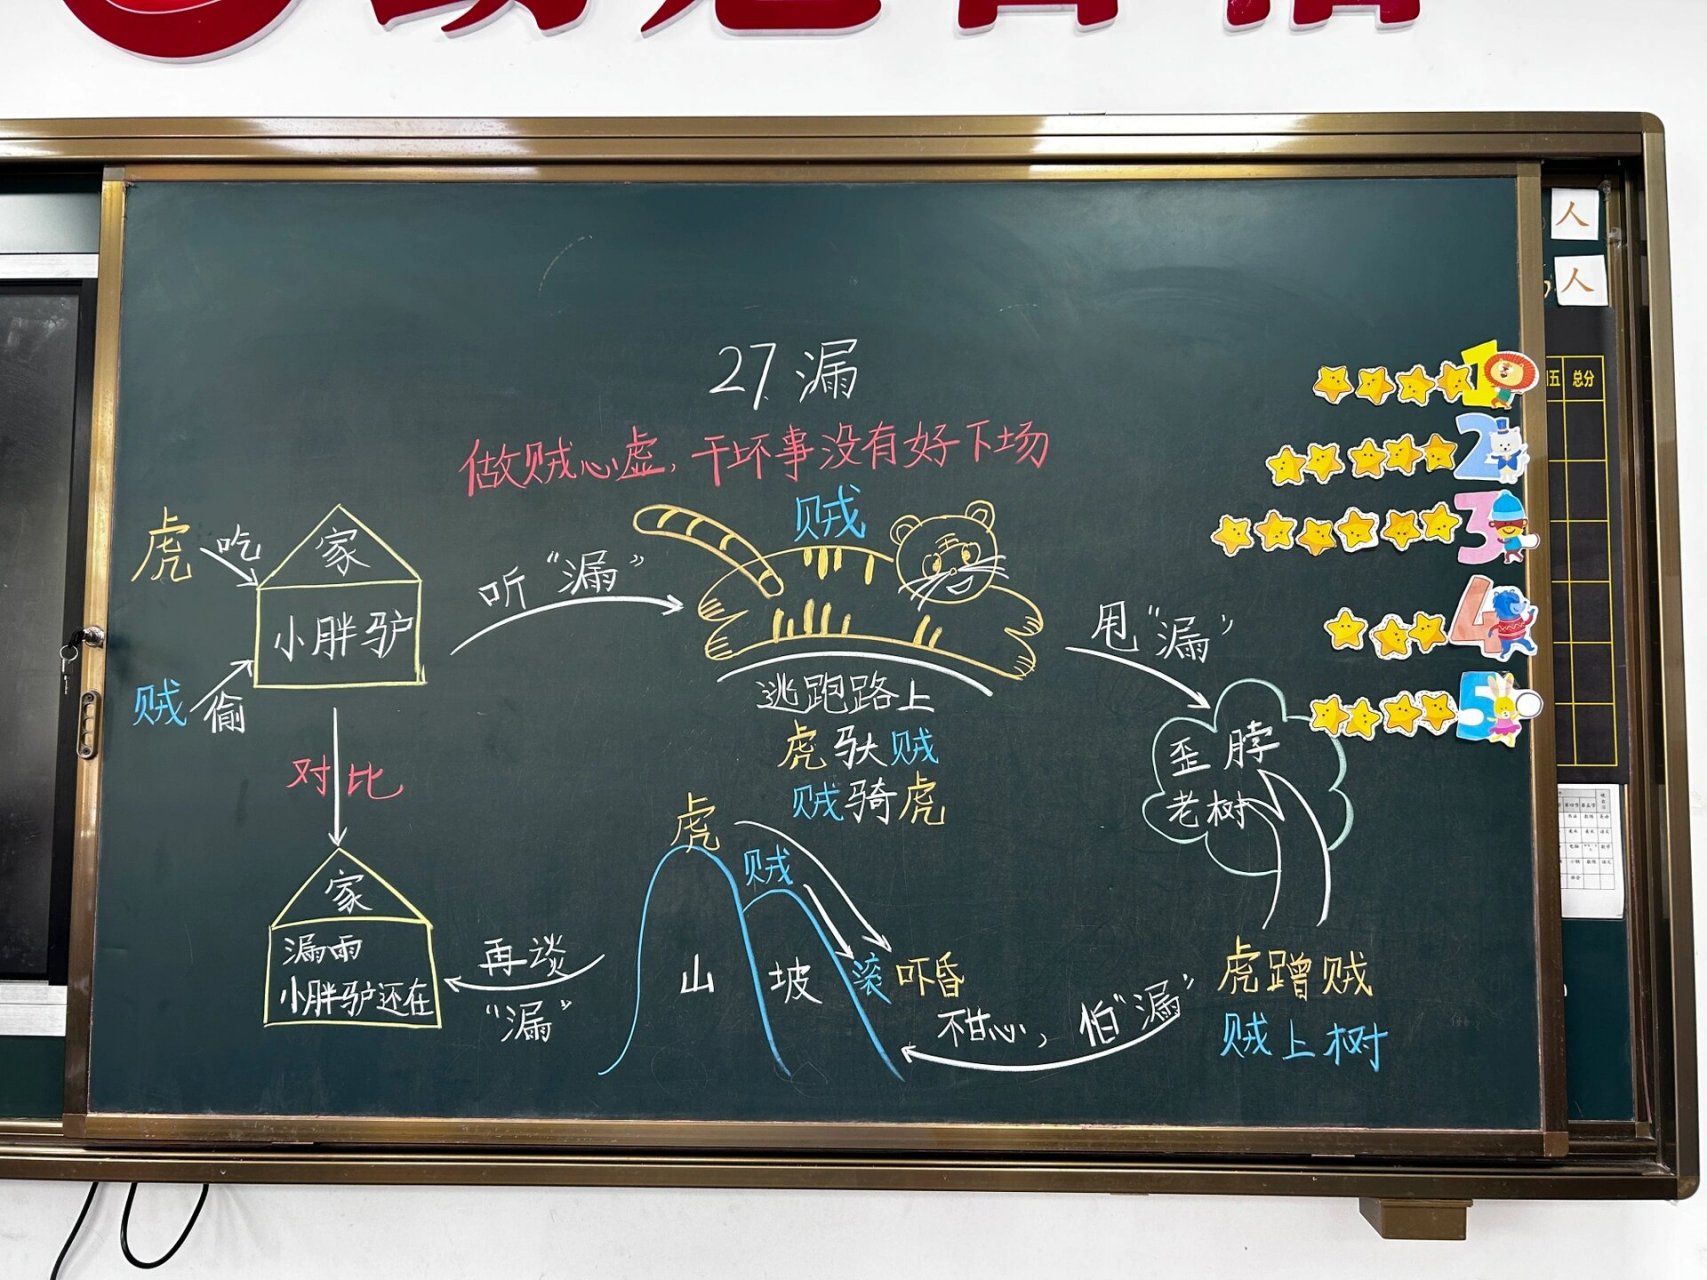 27. 漏
做贼心虚,干坏事没有好下场
虎 吃
家
小胖驴
贼 偷
听“漏”
贼
逃跑路上
虎驮贼
贼骑虎
甩“漏”
歪脖
老树
虎蹭贼
贼上树
不甘心,怕“漏”
虎
贼
山坡
滚 吓昏
再谈
“漏”
对比
家
漏雨
小胖驴还在
1
2
3
4
5
人
人
五 总分